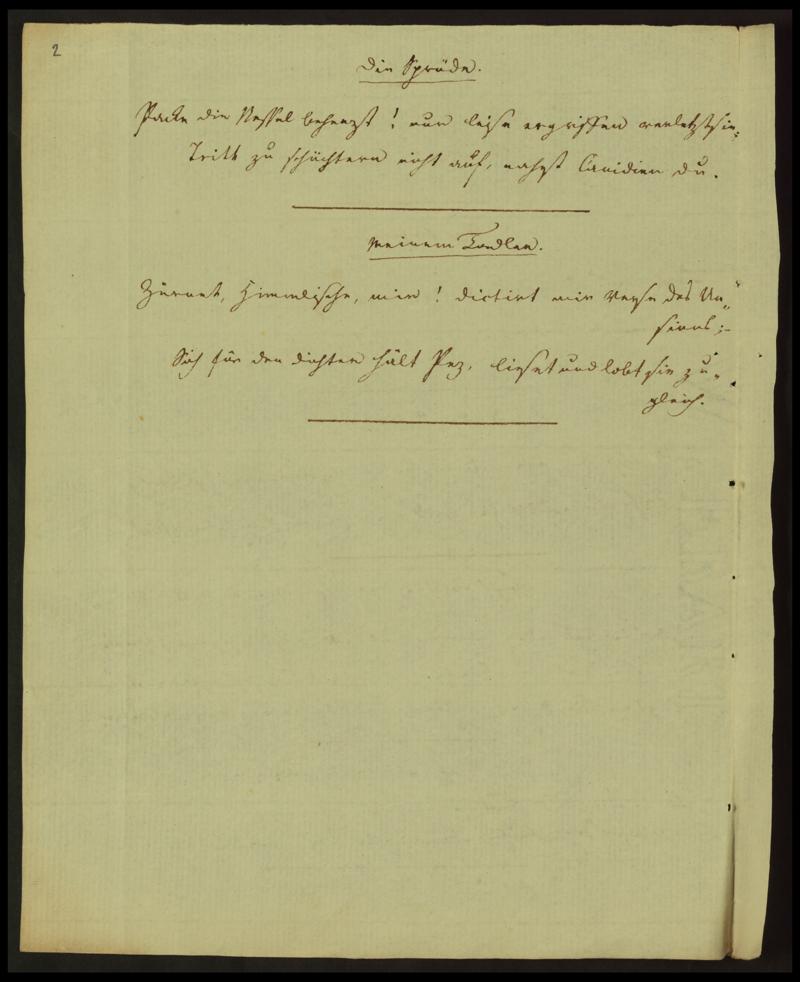 2
Die Spröde.
Packe die Nessel beherzt! nur leise ergriffen verletzt sie;
Tritt zu schüchtern nicht auf, nahest Canidien du.
Meinem
Zürnet, Himmlische, mir! dictirt mir Verse des Un-
sinns;-
Sich für den Dichter hält Pez, lieset und lobt sie zu-
gleich.